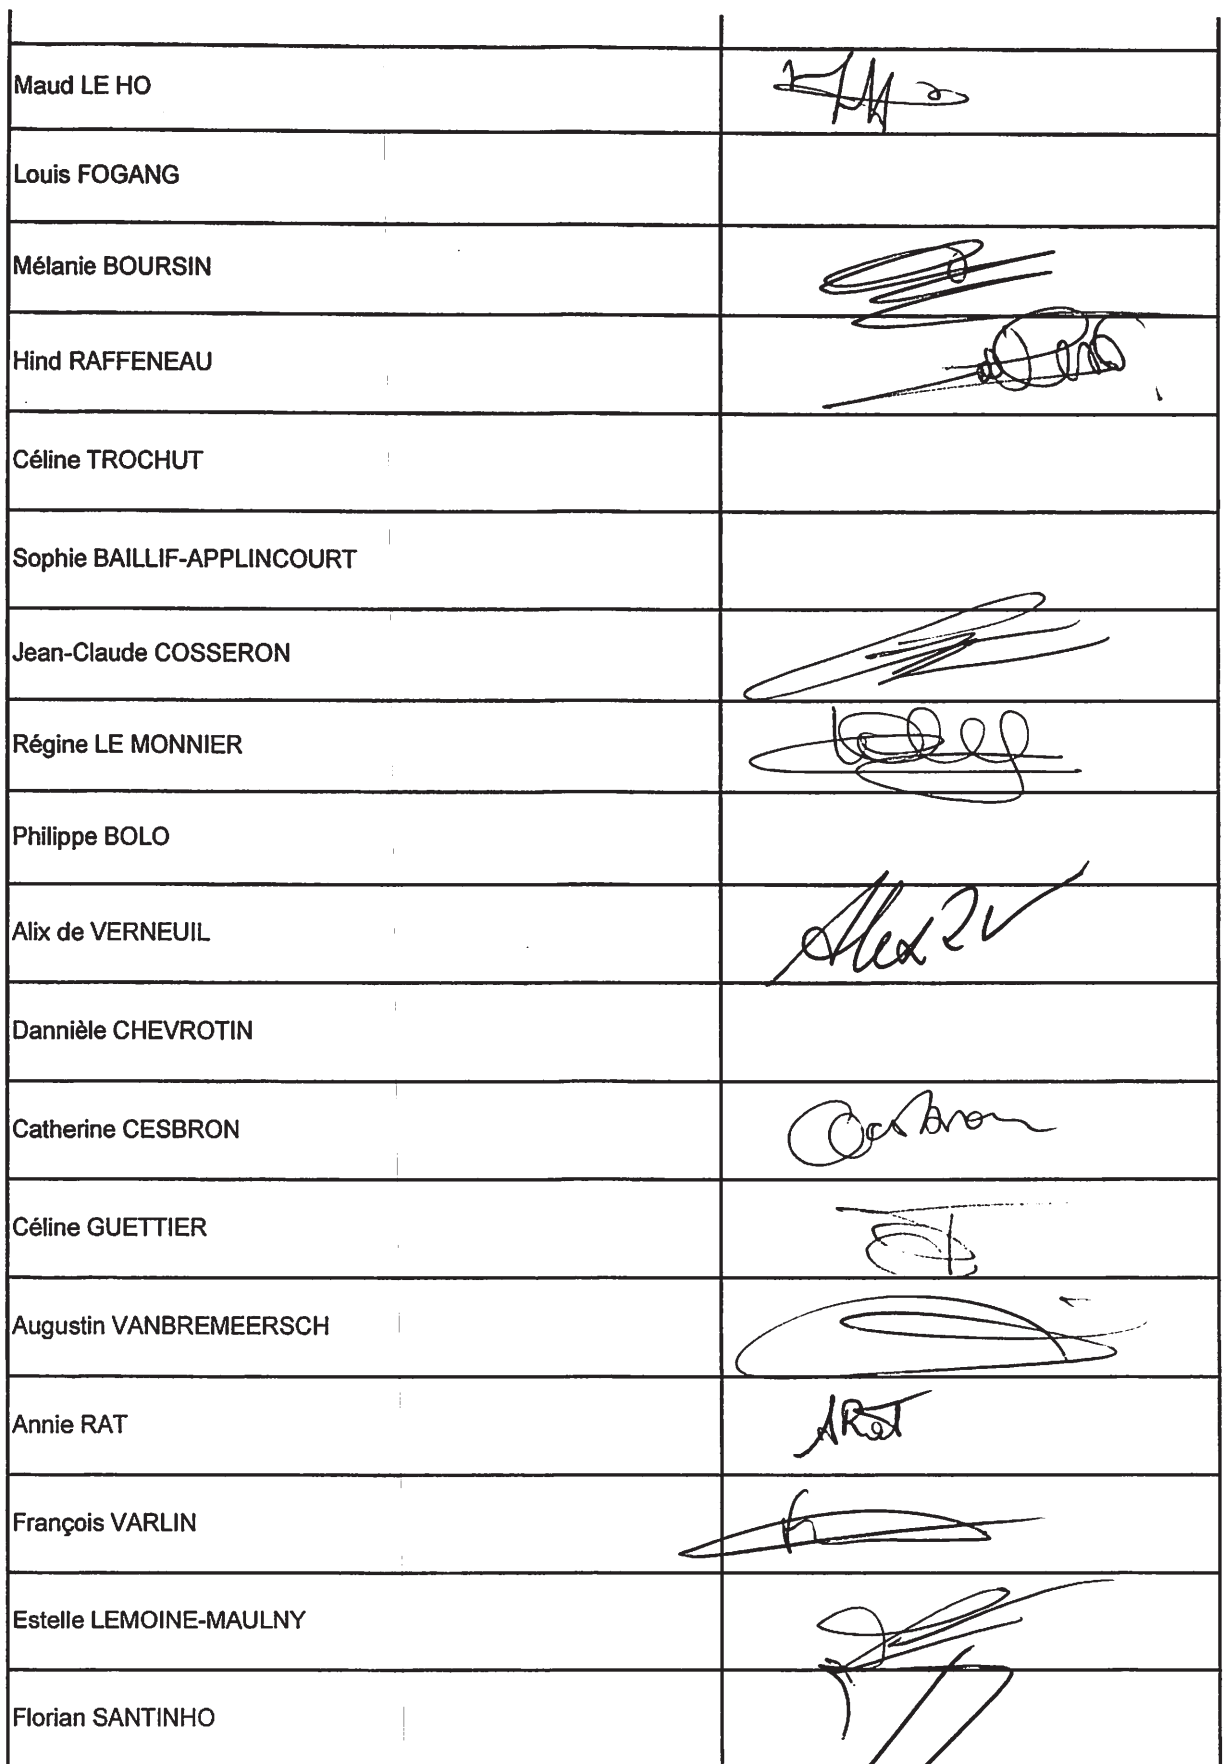 Maud LE HO
Louis FOGANG
Mélanie BOURSIN
Hind RAFFENEAU
Céline TROCHUT
Sophie BAILLIF-APPLINCOURT
Jean-Claude COSSERON
Régine LE MONNIER
Philippe BOLO
Alix de VERNEUIL
Dannièle CHEVROTIN
Catherine CESBRON
Céline GUETTIER
Augustin VANBREMEERSCH
Annie RAT
ARat
François VARLIN
Estelle LEMOINE-MAULNY
Florian SANTINHO